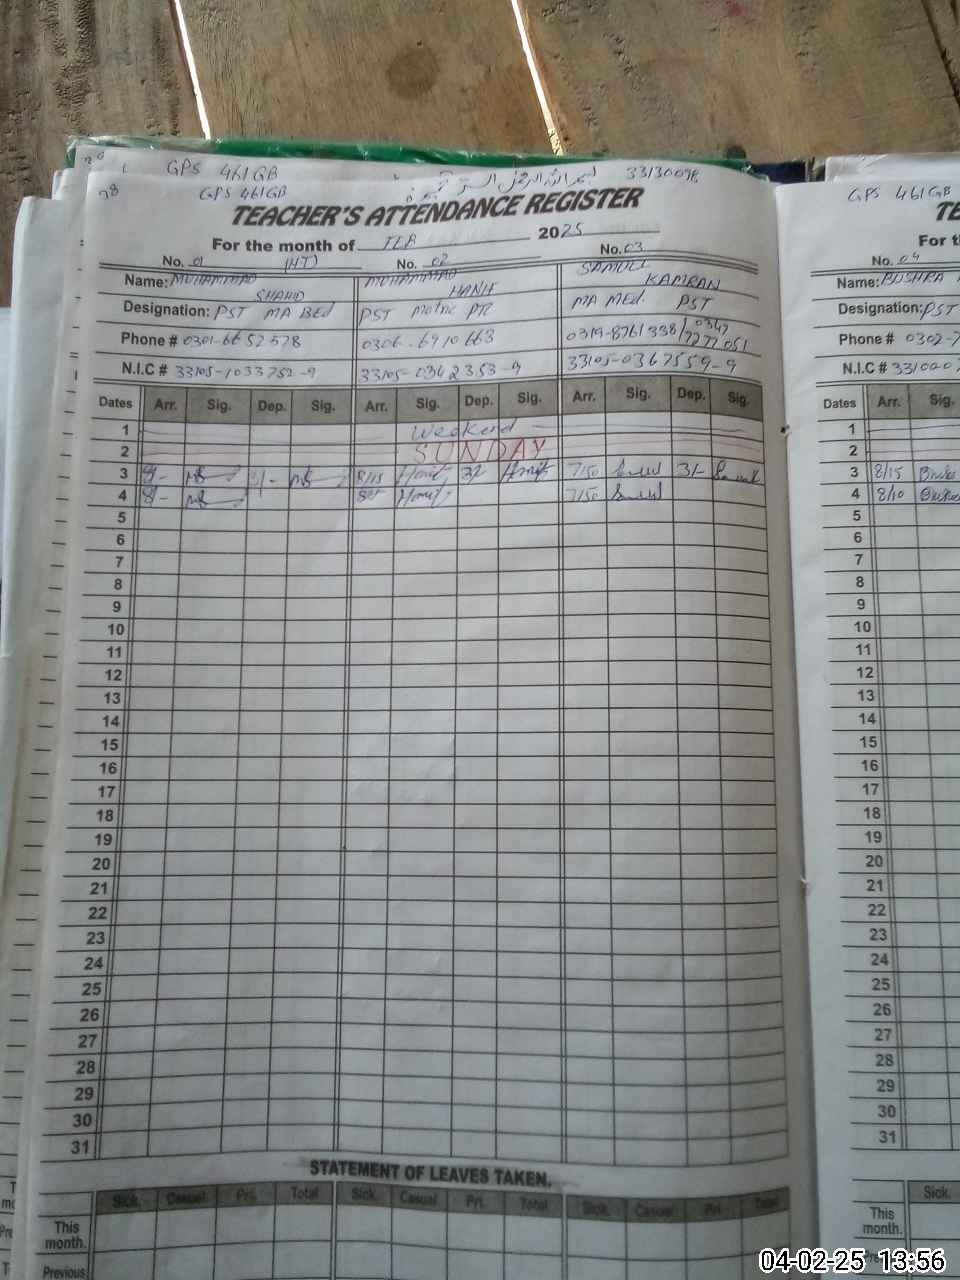 GPS 461GB
GPS 461GB 33130098
TEACHER'S ATTENDANCE REGISTER
For the month of FEB 2025
No. 01 (HT) No. 02 No. 03
Name: MUHAMMAD SHAHID MUHAMMAD HANIF SAMUEL KAMRAN
Designation: PST MA BEd PST Matric PTC MA MEd. PST
Phone # 0301-6652578 0306-6910663 0319-8761338/0347 7277051
N.I.C # 33105-1033752-9 33105-0362353-9 33105-0367559-9
Dates Arr. Sig. Dep. Sig. Arr. Sig. Dep. Sig. Arr. Sig. Dep. Sig.
1 Weekend
2 SUNDAY
3 8/- 3/- 8/15 Hanif 3/- Hanif 7/50 3/-
4 8/- Hanif 7/50
5
6
7
8
9
10
11
12
13
14
15
16
17
18
19
20
21
22
23
24
25
26
27
28
29
30
31
STATEMENT OF LEAVES TAKEN.
Sick. Casual Pri. Total Sick. Casual Pri. Total Sick. Casual Pri. Total
This month.
Previous
GPS 461GB
TE
For t
No. 04
Name: BUSHRA
Designation: PST
Phone # 0302-7
N.I.C # 33100-0
Dates Arr. Sig.
1
2
3 8/15
4 8/10
5
6
7
8
9
10
11
12
13
14
15
16
17
18
19
20
21
22
23
24
25
26
27
28
29
30
31
Sick.
This month.
Previous
04-02-25 13:56